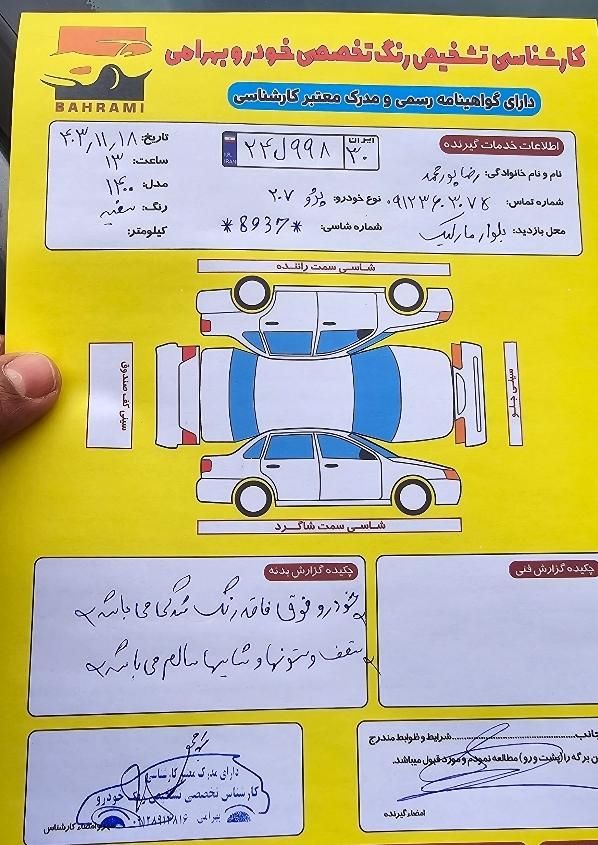 کارشناسی تشخیص رنگ تخصصی خودرو بهرامی
BAHRAMI
دارای گواهینامه رسمی و مدرک معتبر کارشناسی
اطلاعات خدمات گیرنده
ایران
۲۴ ل ۹۹۸ ۳۰
I.R. IRAN
تاریخ: ۴۰۳,۱۱,۱۸
ساعت: ۱۳
نام و نام خانوادگی: رضا پورمحمد
مدل: ۱۴۰۰
شماره تماس:
نوع خودرو: پژو ۲۰۷
رنگ: سفید
محل بازدید: بلوار مارلیک
شماره شاسی: *8937*
کیلومتر:
شاسی سمت راننده
سینی کف صندوق
سینی جلو
شاسی سمت شاگرد
چکیده گزارش فنی
چکیده گزارش بدنه
خودرو فوق فاقد رنگ شدگی می باشد
سقف و ستونها و شاسیها سالم می باشد
جانب.......... شرایط و ظوابط مندرج
ن برگه را (پشت و رو) مطالعه نمودم و مورد قبول میباشد.
امضاء گیرنده
دارای مدرک معتبر کارشناسی
کارشناس تخصصی تشخیص رنگ خودرو
بهرامی ۰۹۱۲۸۹۱۳۸۱۶
امضاء کارشناس